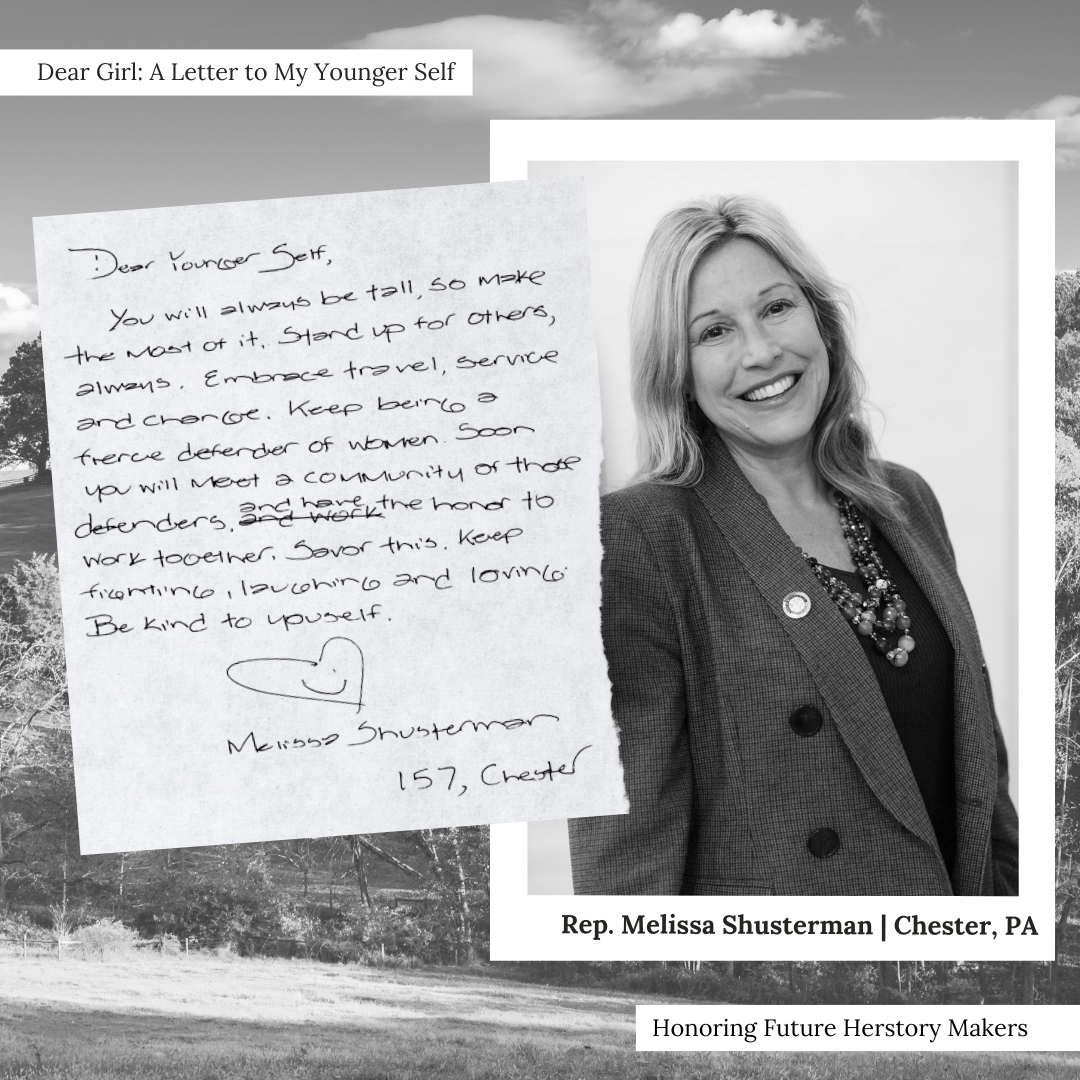 Dear Girl: A Letter to My Younger Self
Dear Younger Self,
You will always be tall, so make
the most of it. Stand up for others,
always. Embrace travel, service
and change. Keep being a
fierce defender of women. Soon
you will meet a community of those
defenders, and have the honor to
and work
work together. Savor this. Keep
fighting, laughing and loving.
Be kind to youself.
Melissa Shusterman
157, Chester
Rep. Melissa Shusterman | Chester, PA
Honoring Future Herstory Makers